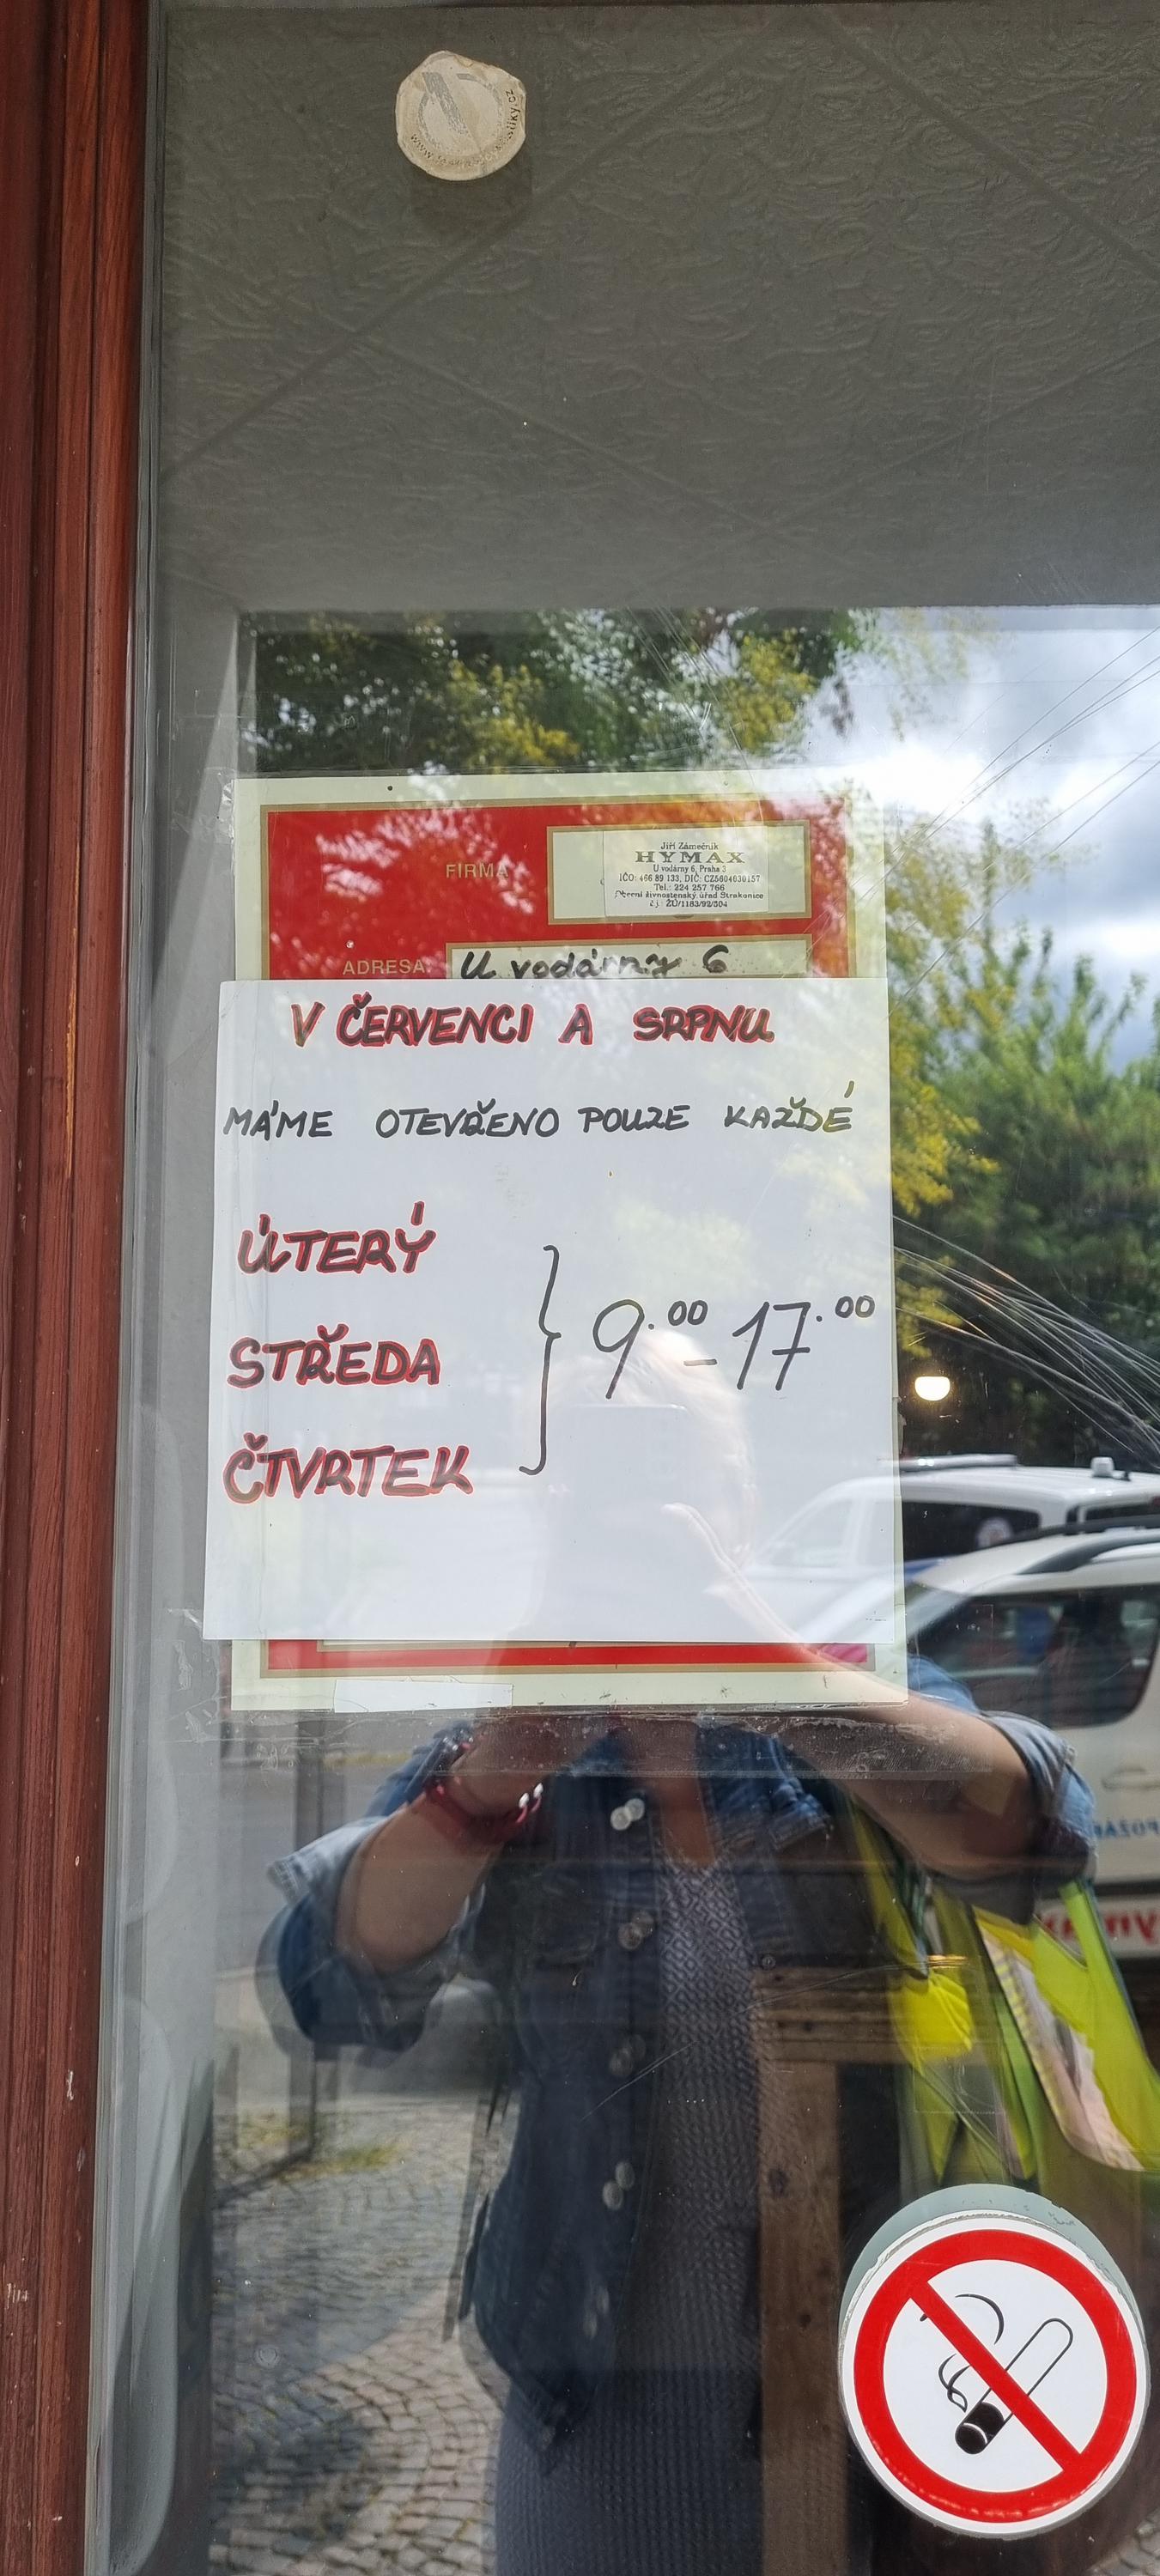 FIRMA
Jiří Zámečník
HYMAX
U vodárny 6, Praha 3
IČO: 466 89 133, DIČ: CZ5604030157
Tel.: 224 257 766
živnostenský úřad Strakonice
ŽÚ/1183/92/504
ADRESA: U vodárny 6
V ČERVENCI A SRPNU
MÁME OTEVŘENO POUZE KAŽDÉ
ÚTERÝ
STŘEDA
ČTVRTEK
9.00 - 17.00